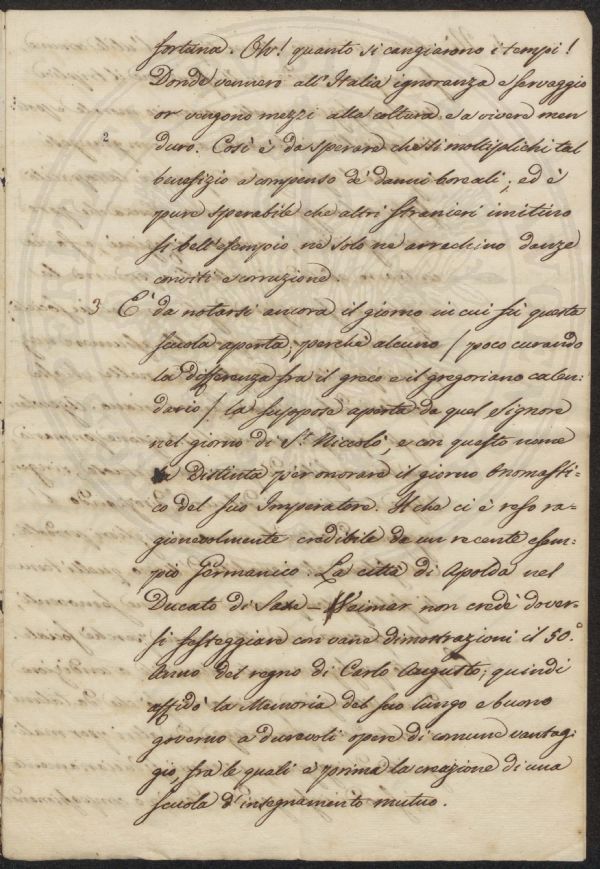 fortuna. Oh! quanto si cangiarono i tempi!
Donde vennero all'Italia ignoranza e servaggio
or vengono mezzi alla coltura e a vivere men
2
duro. Così è da sperare che si moltiplichi tal
benefizio a compenso de' danni boreali; ed è
pure sperabile che altri stranieri imitino
sì bell'esempio ne solo ne arrechino danze
conviti e corruzione.
3 E' da notarsi ancora il giorno in cui fù questa
scuola aperta; perchè alcuno / poco curando
la differenza fra il greco e il gregoriano calen:
dario / la suppose aperta da quel Signore
nel giorno di S.t Niccolò, e con questo nome
distinta per onorare il giorno onomasti:
co del suo Imperatore. Il che ci è reso ra-
gionevolmente credibile da un recente esem:
pio Germanico. La città di Apolda nel
Ducato di Saxe-Weimar non credè dover:
si festeggiare con vane dimostrazioni il 50.°
Anno del regno di Carlo Augusto; quindi
affidò la Memoria del suo lungo e buono
governo a durevoli opere di comune vantag:
gio, fra le quali è prima la creazione di una
scuola d'insegnamento mutuo.